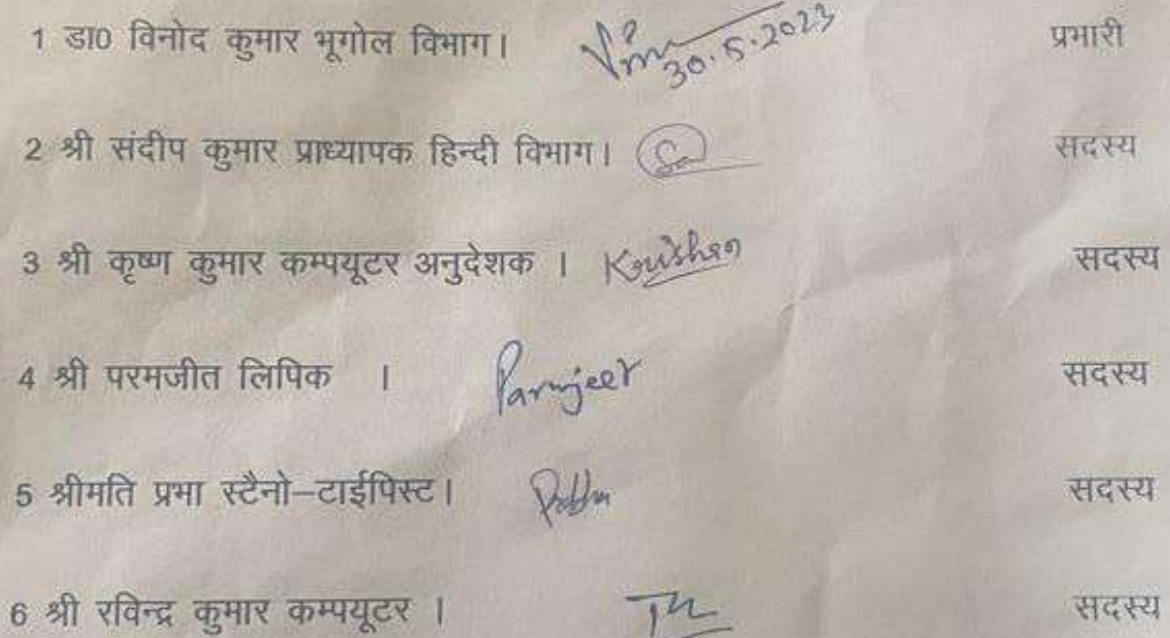 1 डा0 विनोद कुमार भूगोल विभाग। 30.5.2023 प्रभारी
2 श्री संदीप कुमार प्राध्यापक हिन्दी विभाग। सदस्य
3 श्री कृष्ण कुमार कम्पयूटर अनुदेशक । Krishan सदस्य
4 श्री परमजीत लिपिक । Parmjeet सदस्य
5 श्रीमति प्रभा स्टैनो–टाईपिस्ट। सदस्य
6 श्री रविन्द्र कुमार कम्पयूटर । सदस्य